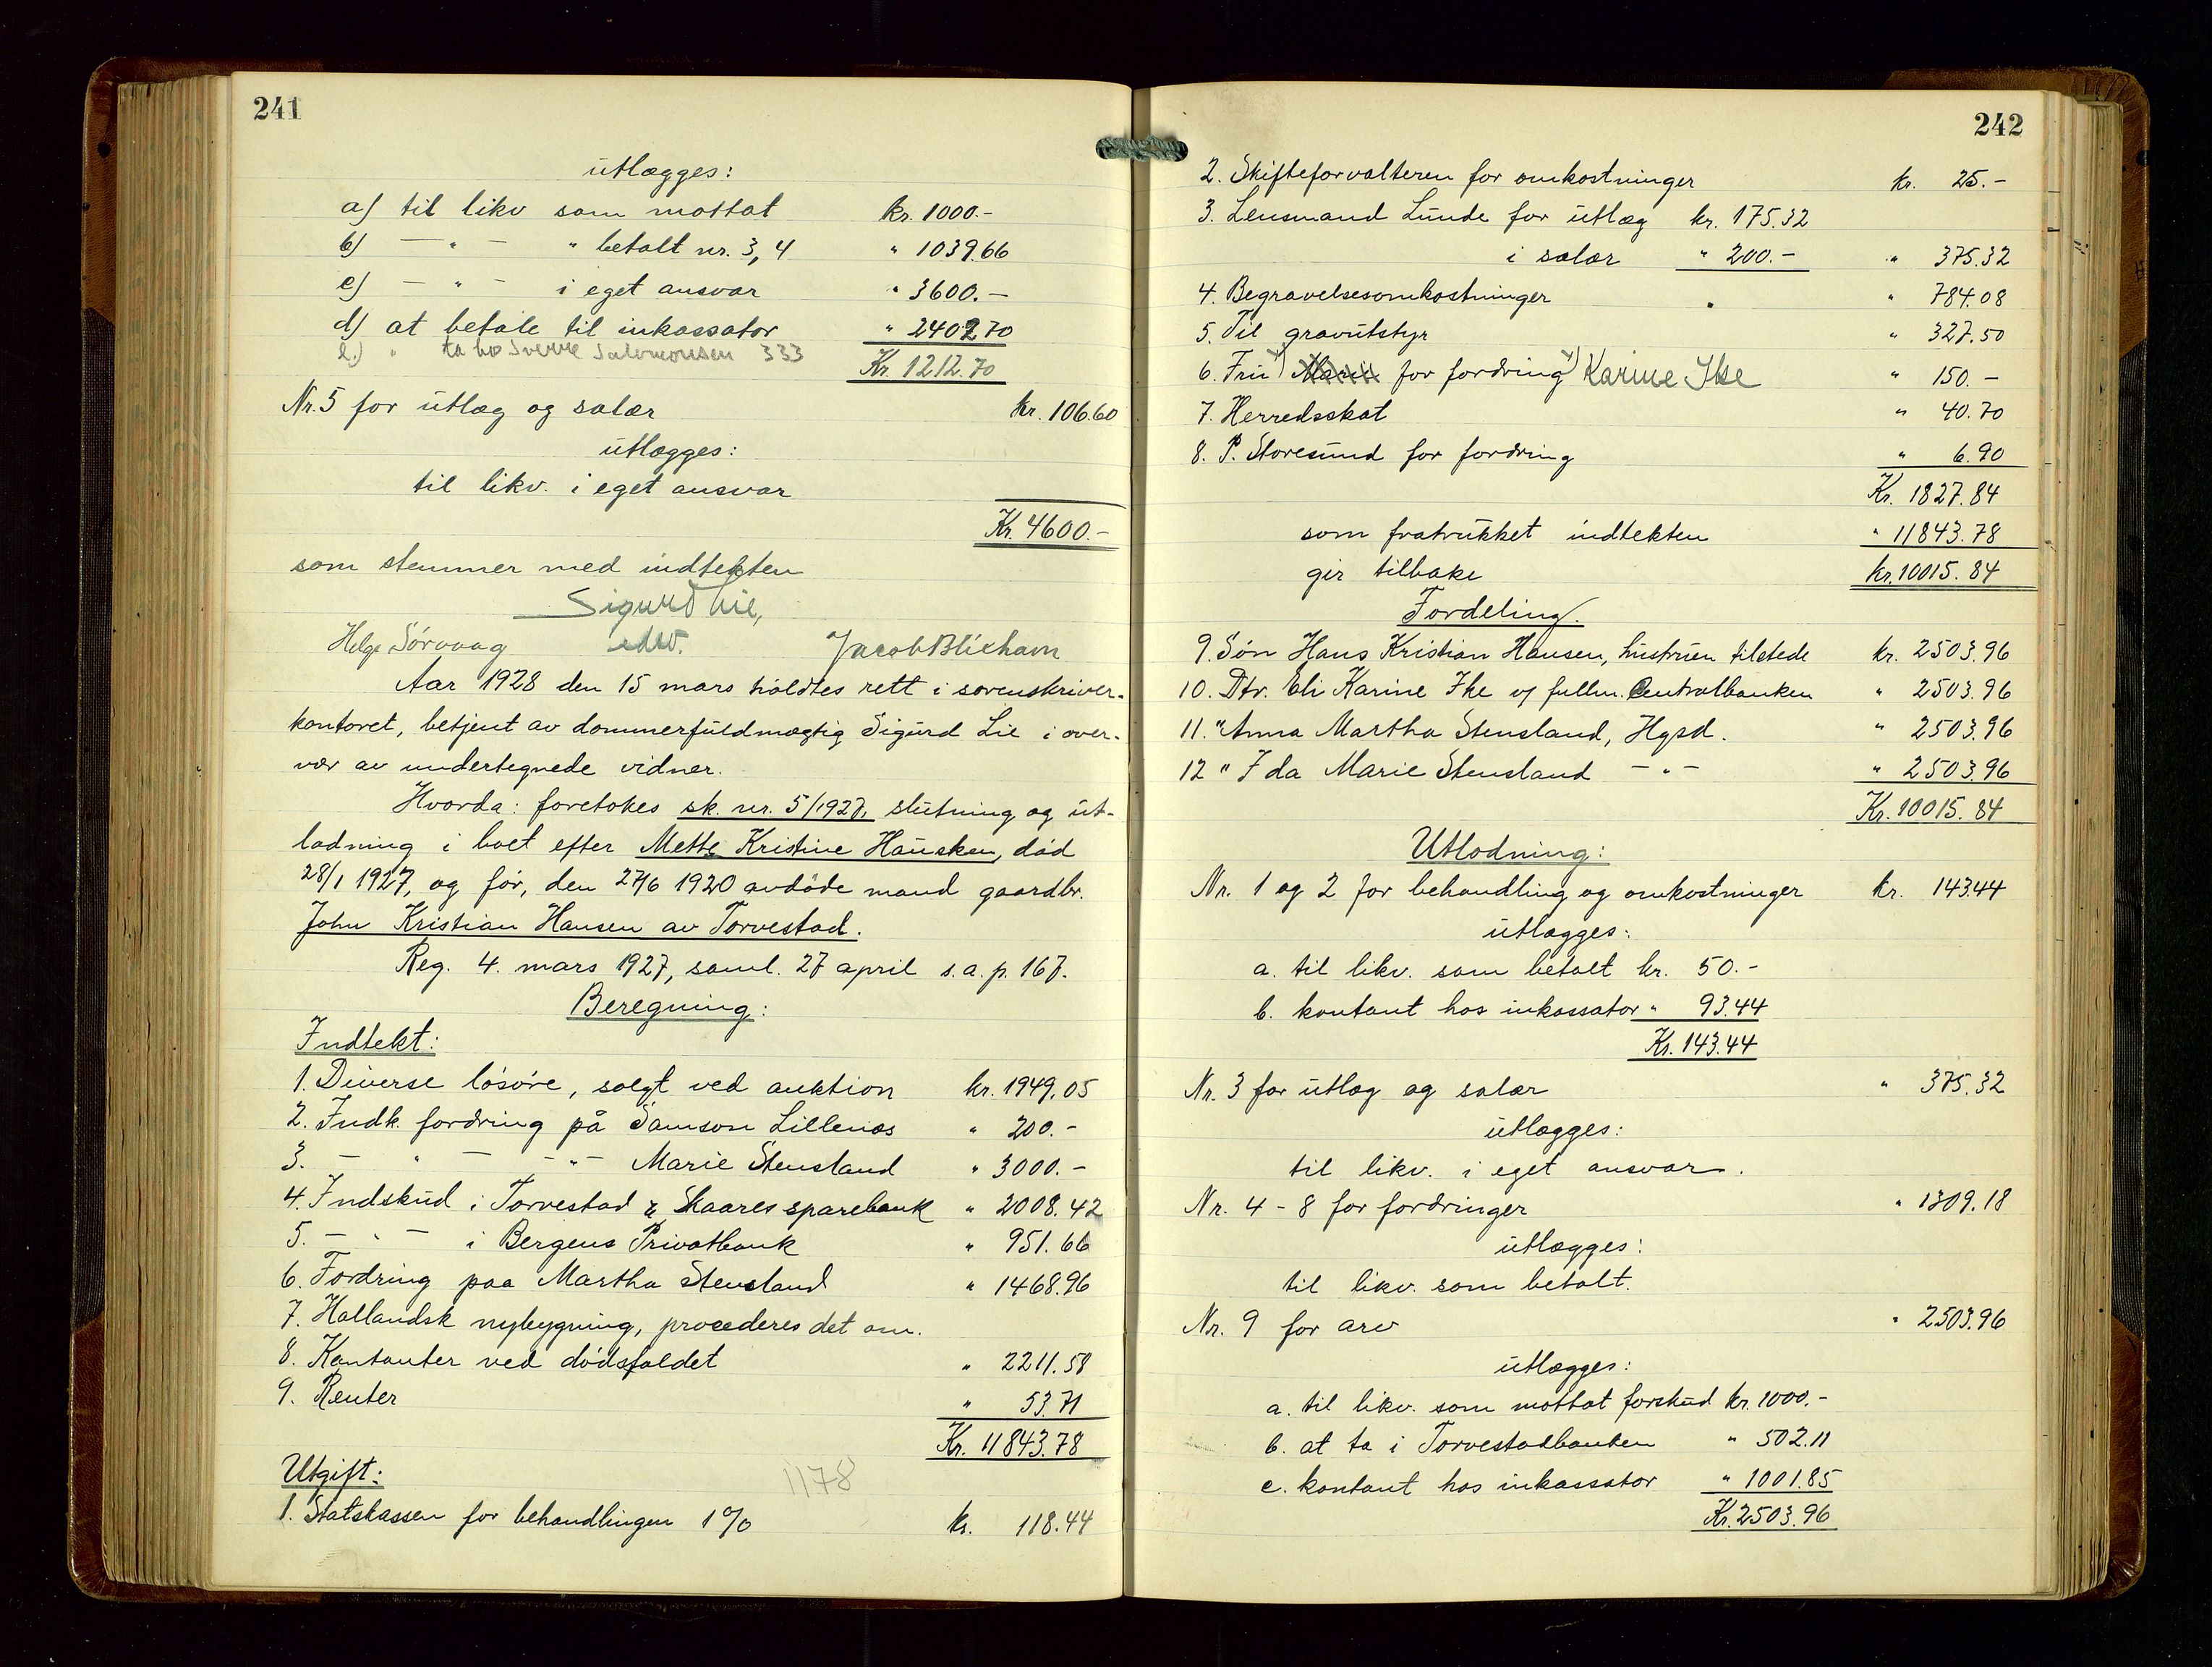 241
utlægges:
a) til likv som mottat kr. 1000.-
b) — " — " betalt nr. 3, 4 " 1039.66
c) — " — i eget ansvar " 3600.—
d) at betale til inkassator " 2402.70
e.) " ta hos Sverre Salomonsen 333
Kr. 1212.70
Nr. 5 for utlæg og salær kr. 106.60
utlægges:
til likv. i eget ansvar
Kr. 4600.-
som stemmer med indtekten
Sigurd Lie,
edv.
Helge Sørvaag Jacob Blixhavn
Aar 1928 den 15 mars holdtes rett i sorenskriver-
kontoret, betjent av dommerfuldmægtig Sigurd Lie i over-
vær av undertegnede vidner.
Hvorda: foretokes sk. nr. 5/1927, slutning og ut-
lodning i boet efter Mette Kristine Hausken, død
28/1 1927, og før, den 27/6 1920 avdøde mand gaardbr.
John Kristian Hansen av Torvestad.
Reg. 4. mars 1927, saml. 27 april s.a. p. 167.
Beregning:
Indtekt:
1. Diverse løsøre, solgt ved auktion kr. 1949.05
2. Indk. fordring på Samson Lillenes " 200.-
3. — " — — " — Marie Stensland " 3000.-
4. Indskud i Torvestad & Skaares sparebank " 2008.42
5. — " — i Bergens Privatbank " 951.66
6. Fordring paa Martha Stensland " 1468.96
7. Hallandsk nybygning, procederes det om.
8. Kontanter ved dødsfaldet " 2211.58
9. Renter " 53.71
Kr. 11843.78
Utgift: 1178
1. Statskassen for behandlingen 1% kr. 118.44
242
2. Skifteforvalteren for omkostninger kr. 25.-
3. Lensmand Lunde for utlæg kr. 175.32
i salær " 200.- " 375.32
4. Begravelsesomkostninger " 784.08
5. Til gravutstyr " 327.50
6. Fru for fordring Karine Ike " 150.—
7. Herredsskat " 40.70
8. P. Storesund for fordring " 6.90
Kr. 1827.84
som fratrukket indtekten " 11843.78
gir tilbake kr. 10015.84
Fordeling.
9. Søn Hans Kristian Hansen, hustruen tilstede kr. 2503.96
10. Dtr. Eli Karine Ike v/ fullm. Centralbanken " 2503.96
11. " Anna Martha Stensland, Hgsd. " 2503.96
12 " Ida Marie Stensland — " — " 2503.96
Kr. 10015.84
Utlodning:
Nr. 1 og 2 for behandling og omkostninger kr. 143.44
utlægges:
a. til likv. som betalt kr. 50.-
b. kontant hos inkassator " 93.44
Kr. 143.44
Nr. 3 for utlæg og salær " 375.32
utlægges:
til likv. i eget ansvar.
Nr. 4 - 8 for fordringer " 1309.18
utlægges:
til likv. som betalt.
Nr. 9 for arv " 2503.96
utlægges:
a. til likv. som mottat forskud kr. 1000.-
b. at ta i Torvestadbanken " 502.11
c. kontant hos inkassator " 1001.85
Kr. 2503.96